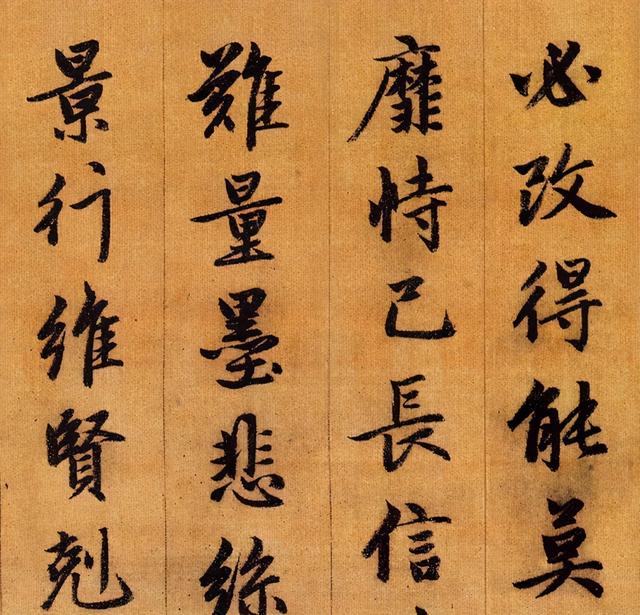 必改得能莫
靡恃己長信
難量墨悲絲
景行維賢剋